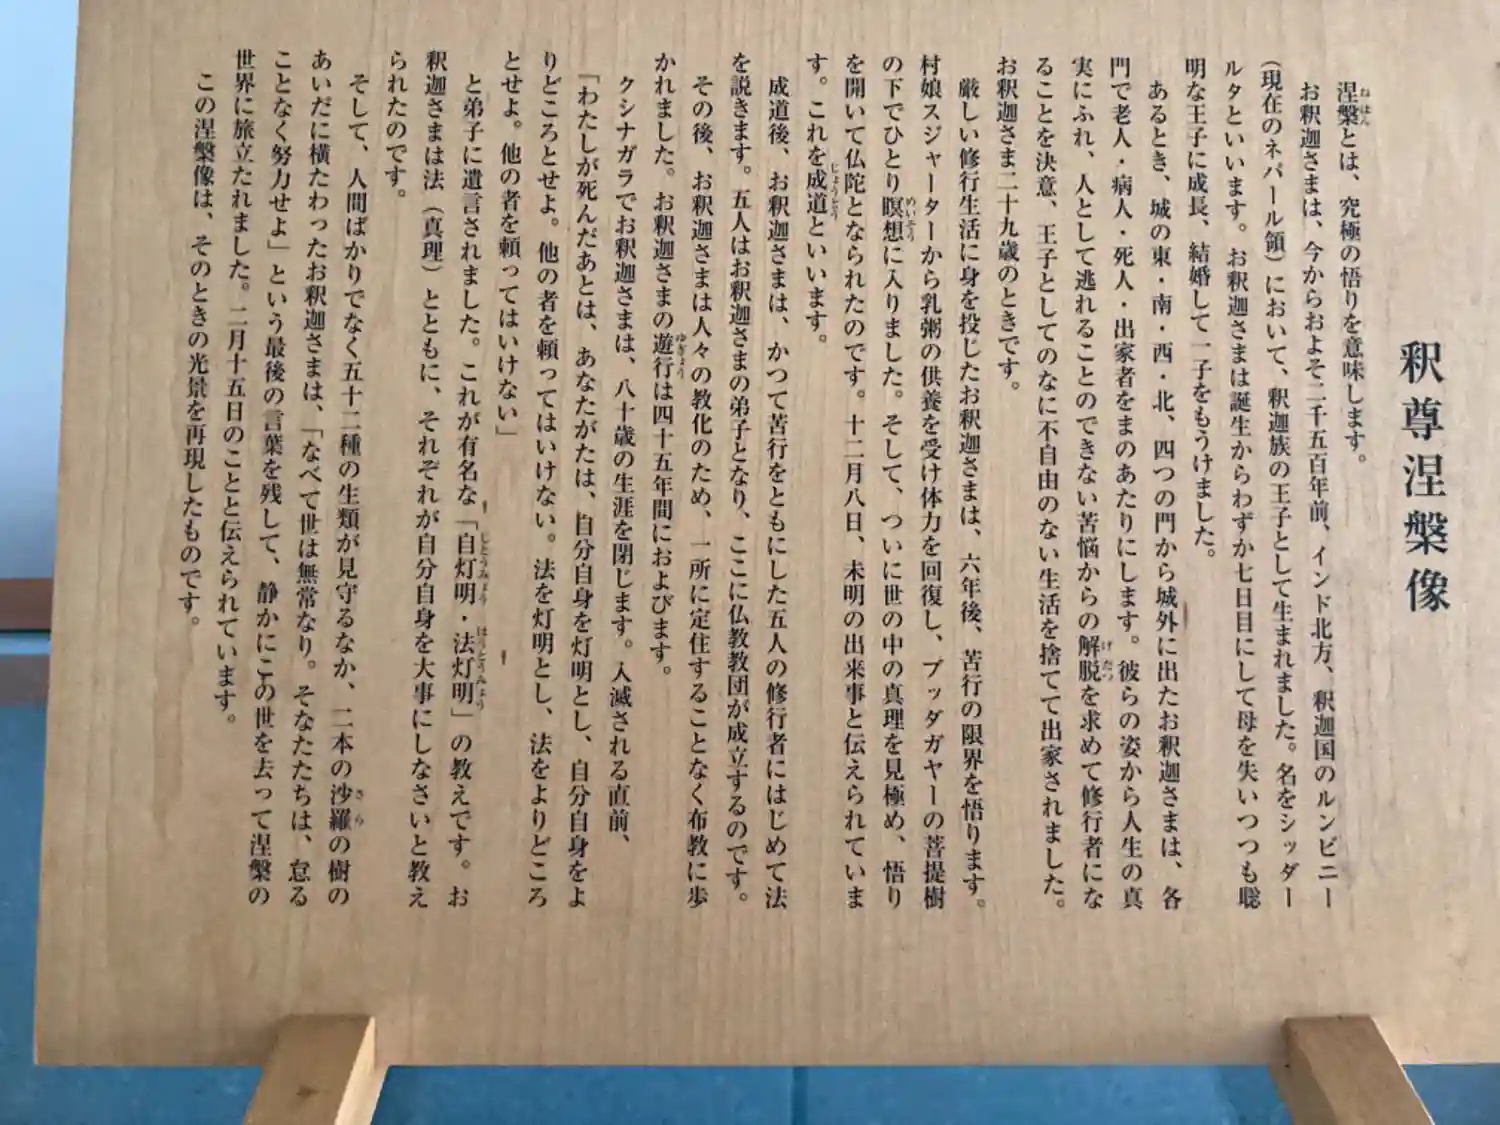 釈尊涅槃像
涅槃とは、究極の悟りを意味します。
お釈迦さまは、今からおよそ二千五百年前、インド北方、釈迦国のルンビニー
（現在のネパール領）において、釈迦族の王子として生まれました。名をシッダー
ルタといいます。お釈迦さまは誕生からわずか七日目にして母を失いつつも聡
明な王子に成長、結婚して一子をもうけました。
あるとき、城の東・南・西・北、四つの門から城外に出たお釈迦さまは、各
門で老人・病人・死人・出家者をまのあたりにします。彼らの姿から人生の真
実にふれ、人として逃れることのできない苦悩からの解脱を求めて修行者にな
ることを決意、王子としてのなに不自由のない生活を捨てて出家されました。
お釈迦さま二十九歳のときです。
厳しい修行生活に身を投じたお釈迦さまは、六年後、苦行の限界を悟ります。
村娘スジャーターから乳粥の供養を受け体力を回復し、ブッダガヤーの菩提樹
の下でひとり瞑想に入りました。そして、ついに世の中の真理を見極め、悟り
を開いて仏陀となられたのです。十二月八日、未明の出来事と伝えられていま
す。これを成道といいます。
成道後、お釈迦さまは、かつて苦行をともにした五人の修行者にはじめて法
を説きます。五人はお釈迦さまの弟子となり、ここに仏教教団が成立するのです。
その後、お釈迦さまは人々の教化のため、一所に定住することなく布教に歩
かれました。お釈迦さまの遊行は四十五年間におよびます。
クシナガラでお釈迦さまは、八十歳の生涯を閉じます。入滅される直前、
「わたしが死んだあとは、あなたがたは、自分自身を灯明とし、自分自身をよ
りどころとせよ。他の者を頼ってはいけない。法を灯明とし、法をよりどころ
とせよ。他の者を頼ってはいけない」
と弟子に遺言されました。これが有名な「自灯明・法灯明」の教えです。お
釈迦さまは法（真理）とともに、それぞれが自分自身を大事にしなさいと教え
られたのです。
そして、人間ばかりでなく五十二種の生類が見守るなか、二本の沙羅の樹の
あいだに横たわったお釈迦さまは、「なべて世は無常なり。そなたたちは、怠る
ことなく努力せよ」という最後の言葉を残して、静かにこの世を去って涅槃の
世界に旅立たれました。二月十五日のことと伝えられています。
この涅槃像は、そのときの光景を再現したものです。